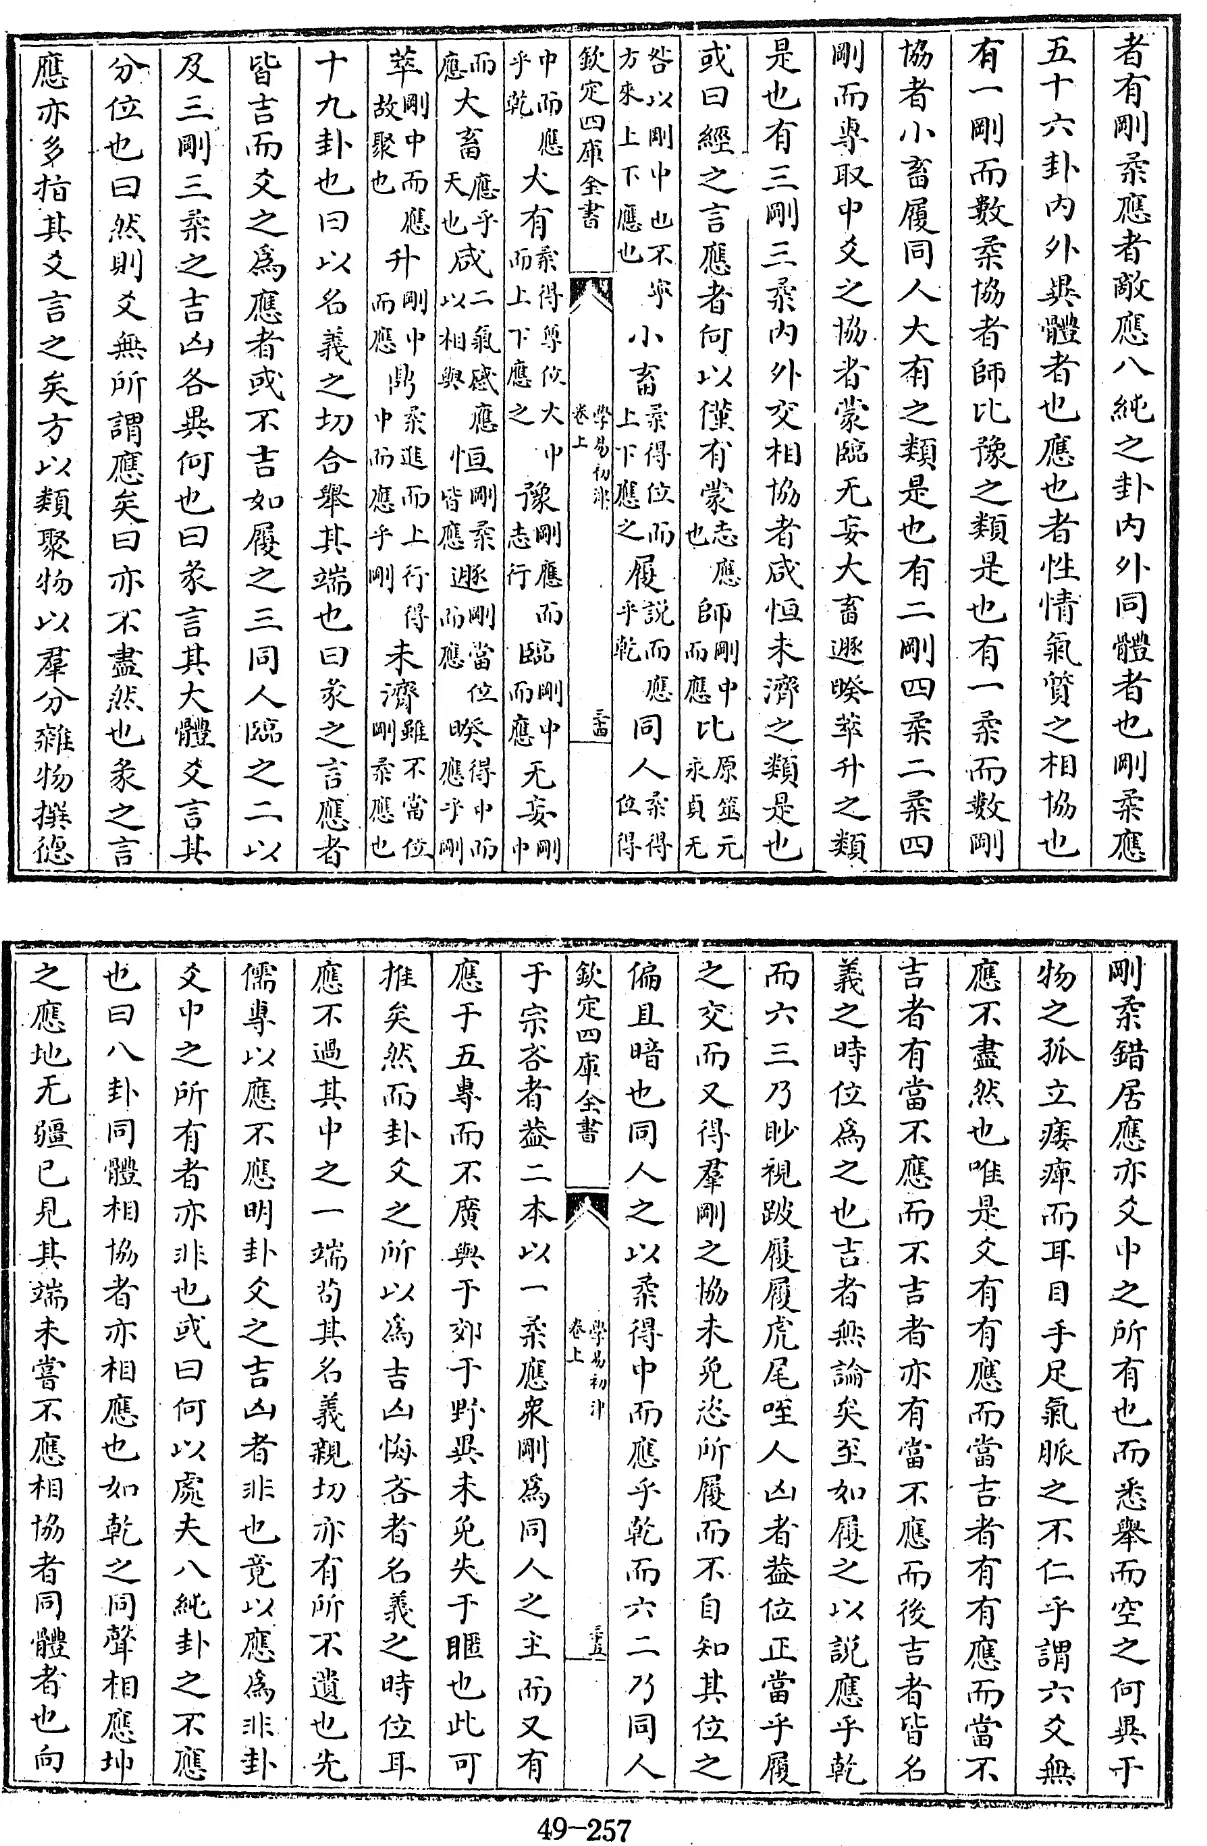 者有剛柔應者敵應八純之卦内外同體者也剛柔應
五十六卦内外異體者也應也者性情氣質之相協也
有一剛而數柔協者師比豫之類是也有一柔而數剛
協者小畜履同人大有之類是也有二剛四柔二柔四
剛而專取中爻之協者蒙臨无妄大畜遯睽萃升之類
是也有三剛三柔内外交相協者咸恒未濟之類是也
或曰經之言應者何以僅有蒙志應也師剛中而應比原筮元永貞无
咎以剛中也不寧方來上下應也小畜柔得位而上下應之履説而應乎乾同人柔得位得
欽定四庫全書 學易初津 卷上 三十四
中而應乎乾大有柔得尊位大中而上下應之豫剛應而志行臨剛中而應无妄剛中
而應大畜應乎天也咸二氣感應以相與恒剛柔皆應遯剛當位而應睽得中而應乎剛
萃剛中而應故聚也升剛中而應鼎柔進而上行得中而應乎剛未濟雖不當位剛柔應也
十九卦也曰以名義之切合舉其端也曰彖之言應者
皆吉而爻之為應者或不吉如履之三同人臨之二以
及三剛三柔之吉凶各異何也曰彖言其大體爻言其
分位也曰然則爻無所謂應矣曰亦不盡然也彖之言
應亦多指其爻言之矣方以類聚物以羣分雜物撰德
剛柔錯居應亦爻中之所有也而悉舉而空之何異于
物之孤立痿痺而耳目手足氣脈之不仁乎謂六爻無
應不盡然也唯是爻有有應而當吉者有有應而當不
吉者有當不應而不吉者亦有當不應而後吉者皆名
義之時位為之也吉者無論矣至如履之以説應乎乾
而六三乃眇視跛履履虎尾咥人凶者葢位正當乎履
之交而又得羣剛之協未免恣所履而不自知其位之
偏且暗也同人之以柔得中而應乎乾而六二乃同人
欽定四庫全書 學易初津 卷上 三十五
于宗吝者葢二本以一柔應衆剛為同人之主而又有
應于五專而不廣與于郊于野異未免失于暱也此可
推矣然而卦爻之所以為吉凶悔吝者名義之時位耳
應不過其中之一端茍其名義親切亦有所不遺也先
儒專以應不應明卦爻之吉凶者非也竟以應為非卦
爻中之所有者亦非也或曰何以處夫八純卦之不應
也曰八卦同體相協者亦相應也如乾之同聲相應坤
之應地无疆已見其端未嘗不應相協者同體者也向
49-257